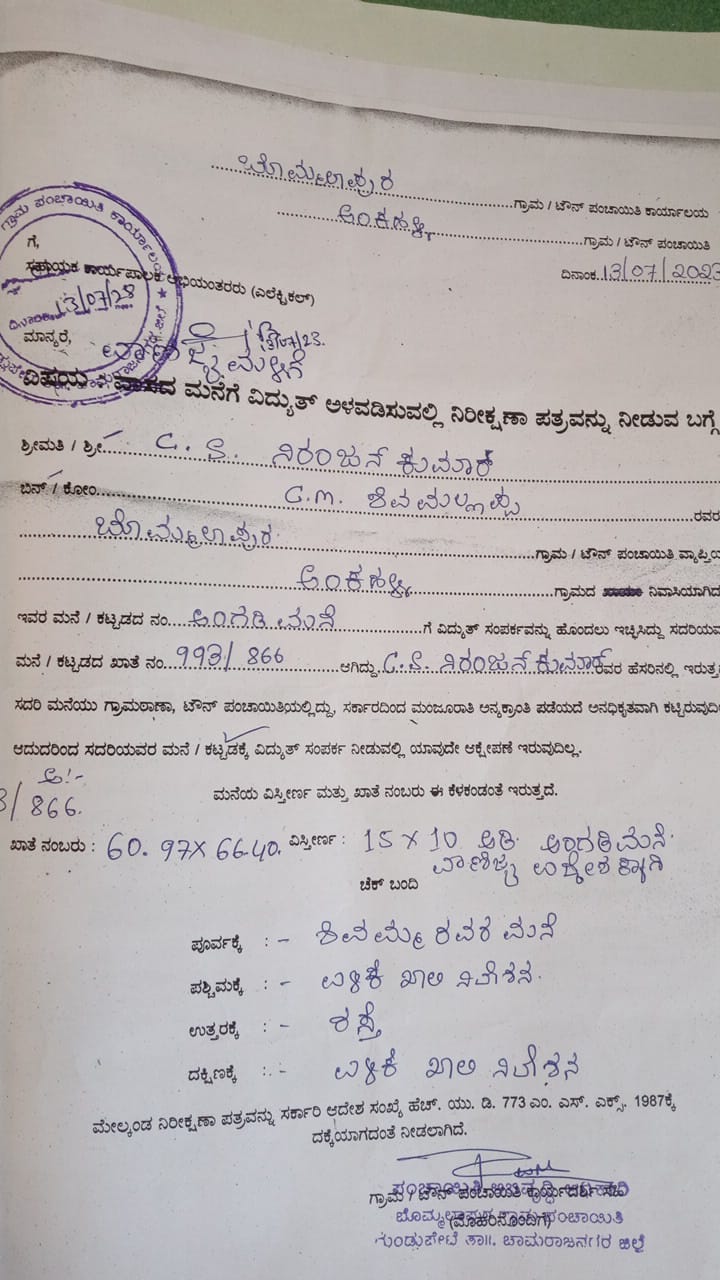 ಬೊಮ್ಮಲಾಪುರ ಗ್ರಾಮ / ಟೌನ್ ಪಂಚಾಯಿತಿ ಕಾರ್ಯಾಲಯ
ಅಂಕಹಳ್ಳಿ ಗ್ರಾಮ / ಟೌನ್ ಪಂಚಾಯಿತಿ
ದಿನಾಂಕ 13/07/2023
ಗ್ರಾಮ ಪಂಚಾಯಿತಿ ಕಾರ್ಯಾಲಯ
ಗೆ,
ಸಹಾಯಕ ಕಾರ್ಯಪಾಲಕ ಅಭಿಯಂತರರು (ಎಲೆಕ್ಟ್ರಿಕಲ್)
ದಿನಾಂಕ 13/07/23
ಮಾನ್ಯರೆ,
ವಾಣಿಜ್ಯ ಮಳಿಗೆ
ವಿಷಯ : ವಾಸದ ಮನೆಗೆ ವಿದ್ಯುತ್ ಅಳವಡಿಸುವಲ್ಲಿ ನಿರೀಕ್ಷಣಾ ಪತ್ರವನ್ನು ನೀಡುವ ಬಗ್ಗೆ
ಶ್ರೀಮತಿ / ಶ್ರೀ C. S. ನಿರಂಜನ್ ಕುಮಾರ್
ಬಿನ್ / ಕೋಂ C.M. ಶಿವಮಲ್ಲಪ್ಪ ರವರ
ಬೊಮ್ಮಲಾಪುರ ಗ್ರಾಮ / ಟೌನ್ ಪಂಚಾಯಿತಿ ವ್ಯಾಪ್ತಿಯ
ಅಂಕಹಳ್ಳಿ ಗ್ರಾಮದ ನಿವಾಸಿಯಾಗಿದ
ಇವರ ಮನೆ / ಕಟ್ಟಡದ ನಂ. ಅಂಗಡಿ ಮನೆ ಗೆ ವಿದ್ಯುತ್ ಸಂಪರ್ಕವನ್ನು ಹೊಂದಲು ಇಚ್ಛಿಸಿದ್ದು ಸದರಿಯವ
ಮನೆ / ಕಟ್ಟಡದ ಖಾತೆ ನಂ. 993/866 ಆಗಿದ್ದು C.S. ನಿರಂಜನ್ ಕುಮಾರ್ ರವರ ಹೆಸರಿನಲ್ಲಿ ಇರುತ್ತ
ಸದರಿ ಮನೆಯು ಗ್ರಾಮಠಾಣಾ, ಟೌನ್ ಪಂಚಾಯಿತಿಯಲ್ಲಿದ್ದು, ಸರ್ಕಾರದಿಂದ ಮಂಜೂರಾತಿ ಅನ್ಯಕ್ರಾಂತಿ ಪಡೆಯದೆ ಅನಧಿಕೃತವಾಗಿ ಕಟ್ಟಿರುವುದಿಲ
ಆದುದರಿಂದ ಸದರಿಯವರ ಮನೆ / ಕಟ್ಟಡಕ್ಕೆ ವಿದ್ಯುತ್ ಸಂಪರ್ಕ ನೀಡುವಲ್ಲಿ ಯಾವುದೇ ಆಕ್ಷೇಪಣೆ ಇರುವುದಿಲ್ಲ.
ಮನೆಯ ವಿಸ್ತೀರ್ಣ ಮತ್ತು ಖಾತೆ ನಂಬರು ಈ ಕೆಳಕಂಡಂತೆ ಇರುತ್ತದೆ.
3/866.
ಖಾತೆ ನಂಬರು : 60.97X66.40. ವಿಸ್ತೀರ್ಣ : 15 X 10 ಅಡಿ ಅಂಗಡಿ ಮನೆ.
ವಾಣಿಜ್ಯ ಉದ್ದೇಶಕ್ಕಾಗಿ
ಚೆಕ್ ಬಂದಿ
ಪೂರ್ವಕ್ಕೆ :- ಶಿವಮ್ಮ ರವರ ಮನೆ
ಪಶ್ಚಿಮಕ್ಕೆ :- ಉಳಿಕೆ ಖಾಲಿ ನಿವೇಶನ.
ಉತ್ತರಕ್ಕೆ :- ರಸ್ತೆ
ದಕ್ಷಿಣಕ್ಕೆ :- ಉಳಿಕೆ ಖಾಲಿ ನಿವೇಶನ
ಮೇಲ್ಕಂಡ ನಿರೀಕ್ಷಣಾ ಪತ್ರವನ್ನು ಸರ್ಕಾರಿ ಆದೇಶ ಸಂಖ್ಯೆ ಹೆಚ್. ಯು. ಡಿ. 773 ಎಂ. ಎಸ್. ಎಕ್ಸ್. 1987ಕ್ಕೆ
ದಕ್ಕೆಯಾಗದಂತೆ ನೀಡಲಾಗಿದೆ.
ಗ್ರಾಮ / ಟೌನ್ ಪಂಚಾಯಿತಿ ಕಾರ್ಯದರ್ಶಿ ಸಹಿ
(ಮೊಹರಿನೊಂದಿಗೆ)
ಬೊಮ್ಮಲಾಪುರ ಗ್ರಾಮ ಪಂಚಾಯಿತಿ
ಗುಂಡ್ಲುಪೇಟೆ ತಾ||. ಚಾಮರಾಜನಗರ ಜಿಲ್ಲೆ